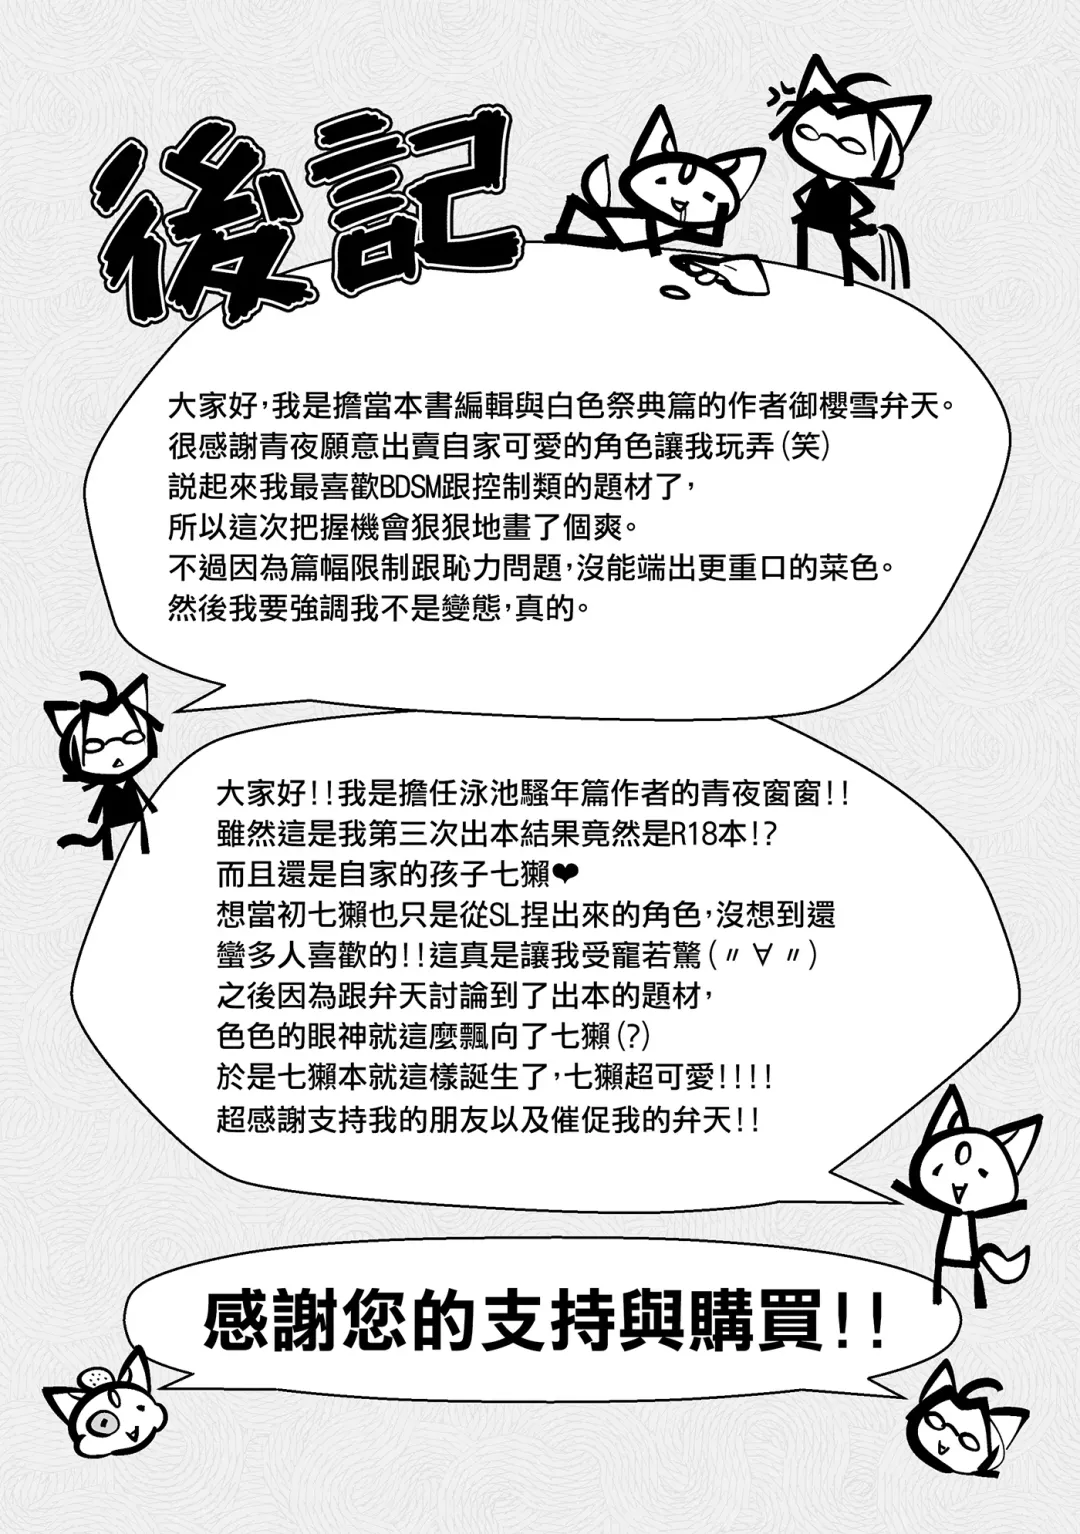 後記
大家好，我是擔當本書編輯與白色祭典篇的作者御櫻雪弁天。
很感謝青夜願意出賣自家可愛的角色讓我玩弄(笑)
説起來我最喜歡BDSM跟控制類的題材了，
所以這次把握機會狠狠地畫了個爽。
不過因為篇幅限制跟恥力問題，沒能端出更重口的菜色。
然後我要強調我不是變態，真的。
大家好!!我是擔任泳池騷年篇作者的青夜窗窗!!
雖然這是我第三次出本結果竟然是R18本!?
而且還是自家的孩子七獺❤
想當初七獺也只是從SL捏出來的角色，沒想到還
蠻多人喜歡的!!這真是讓我受寵若驚(〃∀〃)
之後因為跟弁天討論到了出本的題材，
色色的眼神就這麼飄向了七獺(?)
於是七獺本就這樣誕生了，七獺超可愛!!!!
超感謝支持我的朋友以及催促我的弁天!!
感謝您的支持與購買!!